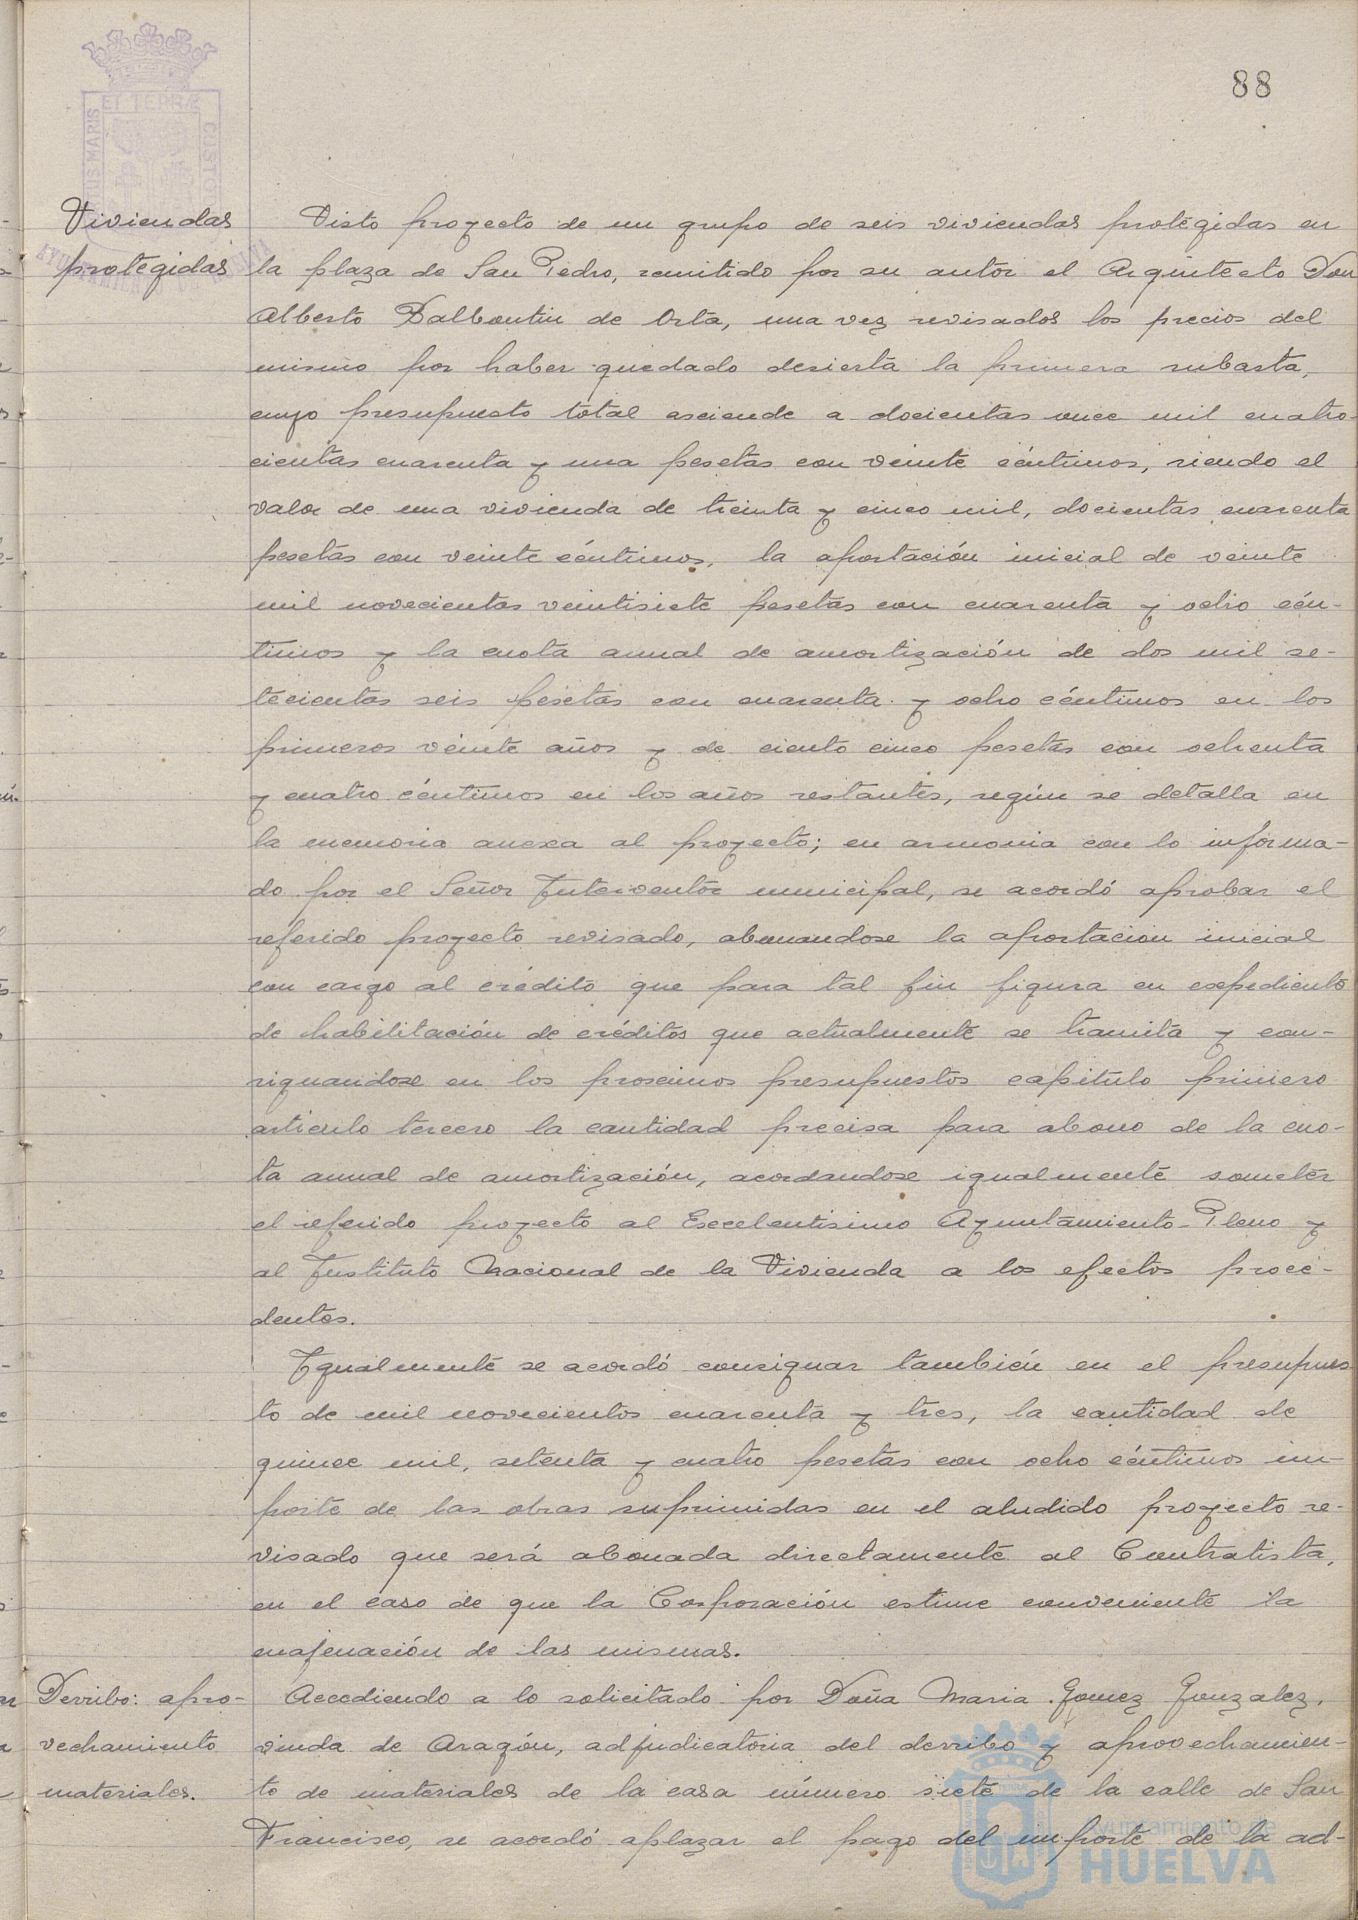 88
ET TERRÆ
CUSTO
US MARIS
Viviendas
protegidas
Visto proyecto de un grupo de seis viviendas protegidas en
la plaza de San Pedro, remitido por su autor el Arquitecto Don
Alberto Balbontin de Orta, una vez revisados los precios del
mismo por haber quedado desierta la primera subasta,
cuyo presupuesto total asciende a docientas once mil cuatro-
cientas cuarenta y una pesetas con veinte céntimos, siendo el
valor de una vivienda de treinta y cinco mil, docientas cuarenta
pesetas con veinte céntimos, la aportación inicial de veinte
mil novecientas veintisiete pesetas con cuarenta y ocho cén-
timos y la cuota anual de amortización de dos mil se-
tecientas seis pesetas con cuarenta y ocho céntimos en los
primeros veinte años y de ciento cinco pesetas con ochenta
y cuatro céntimos en los años restantes, según se detalla en
la memoria anexa al proyecto; en armonia con lo informa-
do por el Señor Interventor municipal, se acordó aprobar el
referido proyecto revisado, abonandose la aportacion inicial
con cargo al crédito que para tal fin figura en expediente
de habilitación de créditos que actualmente se tramita y con-
signandose en los proximos presupuestos capitulo primero
articulo tercero la cantidad precisa para abono de la cuo-
ta anual de amortización, acordandose igualmente someter
el referido proyecto al Excelentisimo Ayuntamiento-Pleno y
al Instituto Nacional de la Vivienda a los efectos proce-
dentes.
Igualmente se acordó consignar también en el presupues-
to de mil novecientos cuarenta y tres, la cantidad de
quince mil, setenta y cuatro pesetas con ocho céntimos im-
porte de las obras suprimidas en el aludido proyecto re-
visado que será abonada directamente al Contratista,
en el caso de que la Corporación estime conveniente la
enajenación de las mismas.
Derribo: apro-
vechamiento
materiales.
Accediendo a lo solicitado por Doña Maria Gomez Gonzalez,
viuda de Aragón, adjudicatoria del derribo y aprovechamien-
to de materiales de la casa número siete de la calle de San
Francisco, se acordó aplazar el pago del importe de la ad-
Ayuntamiento de
HUELVA